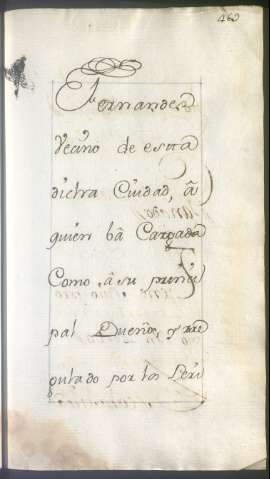 460
Fernandez
Vecino de esta
dicha Ciudad, â
quien bâ Cargada
Como, â su princi
pal Dueño, y rre
gulado por los Peri